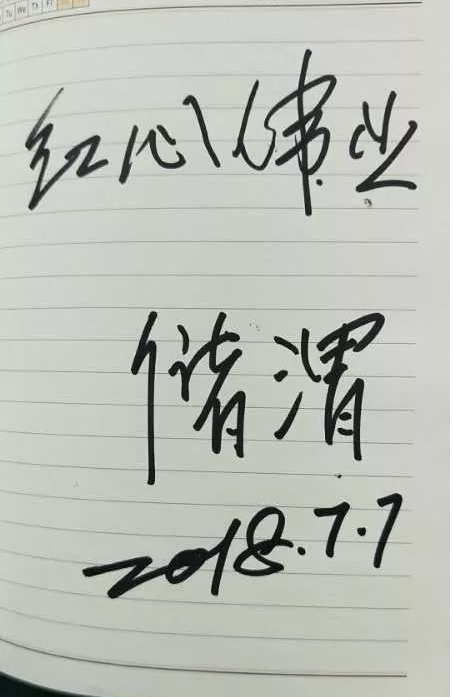 Tu We Th Fr
红心伟业
储渭
2018.7.7